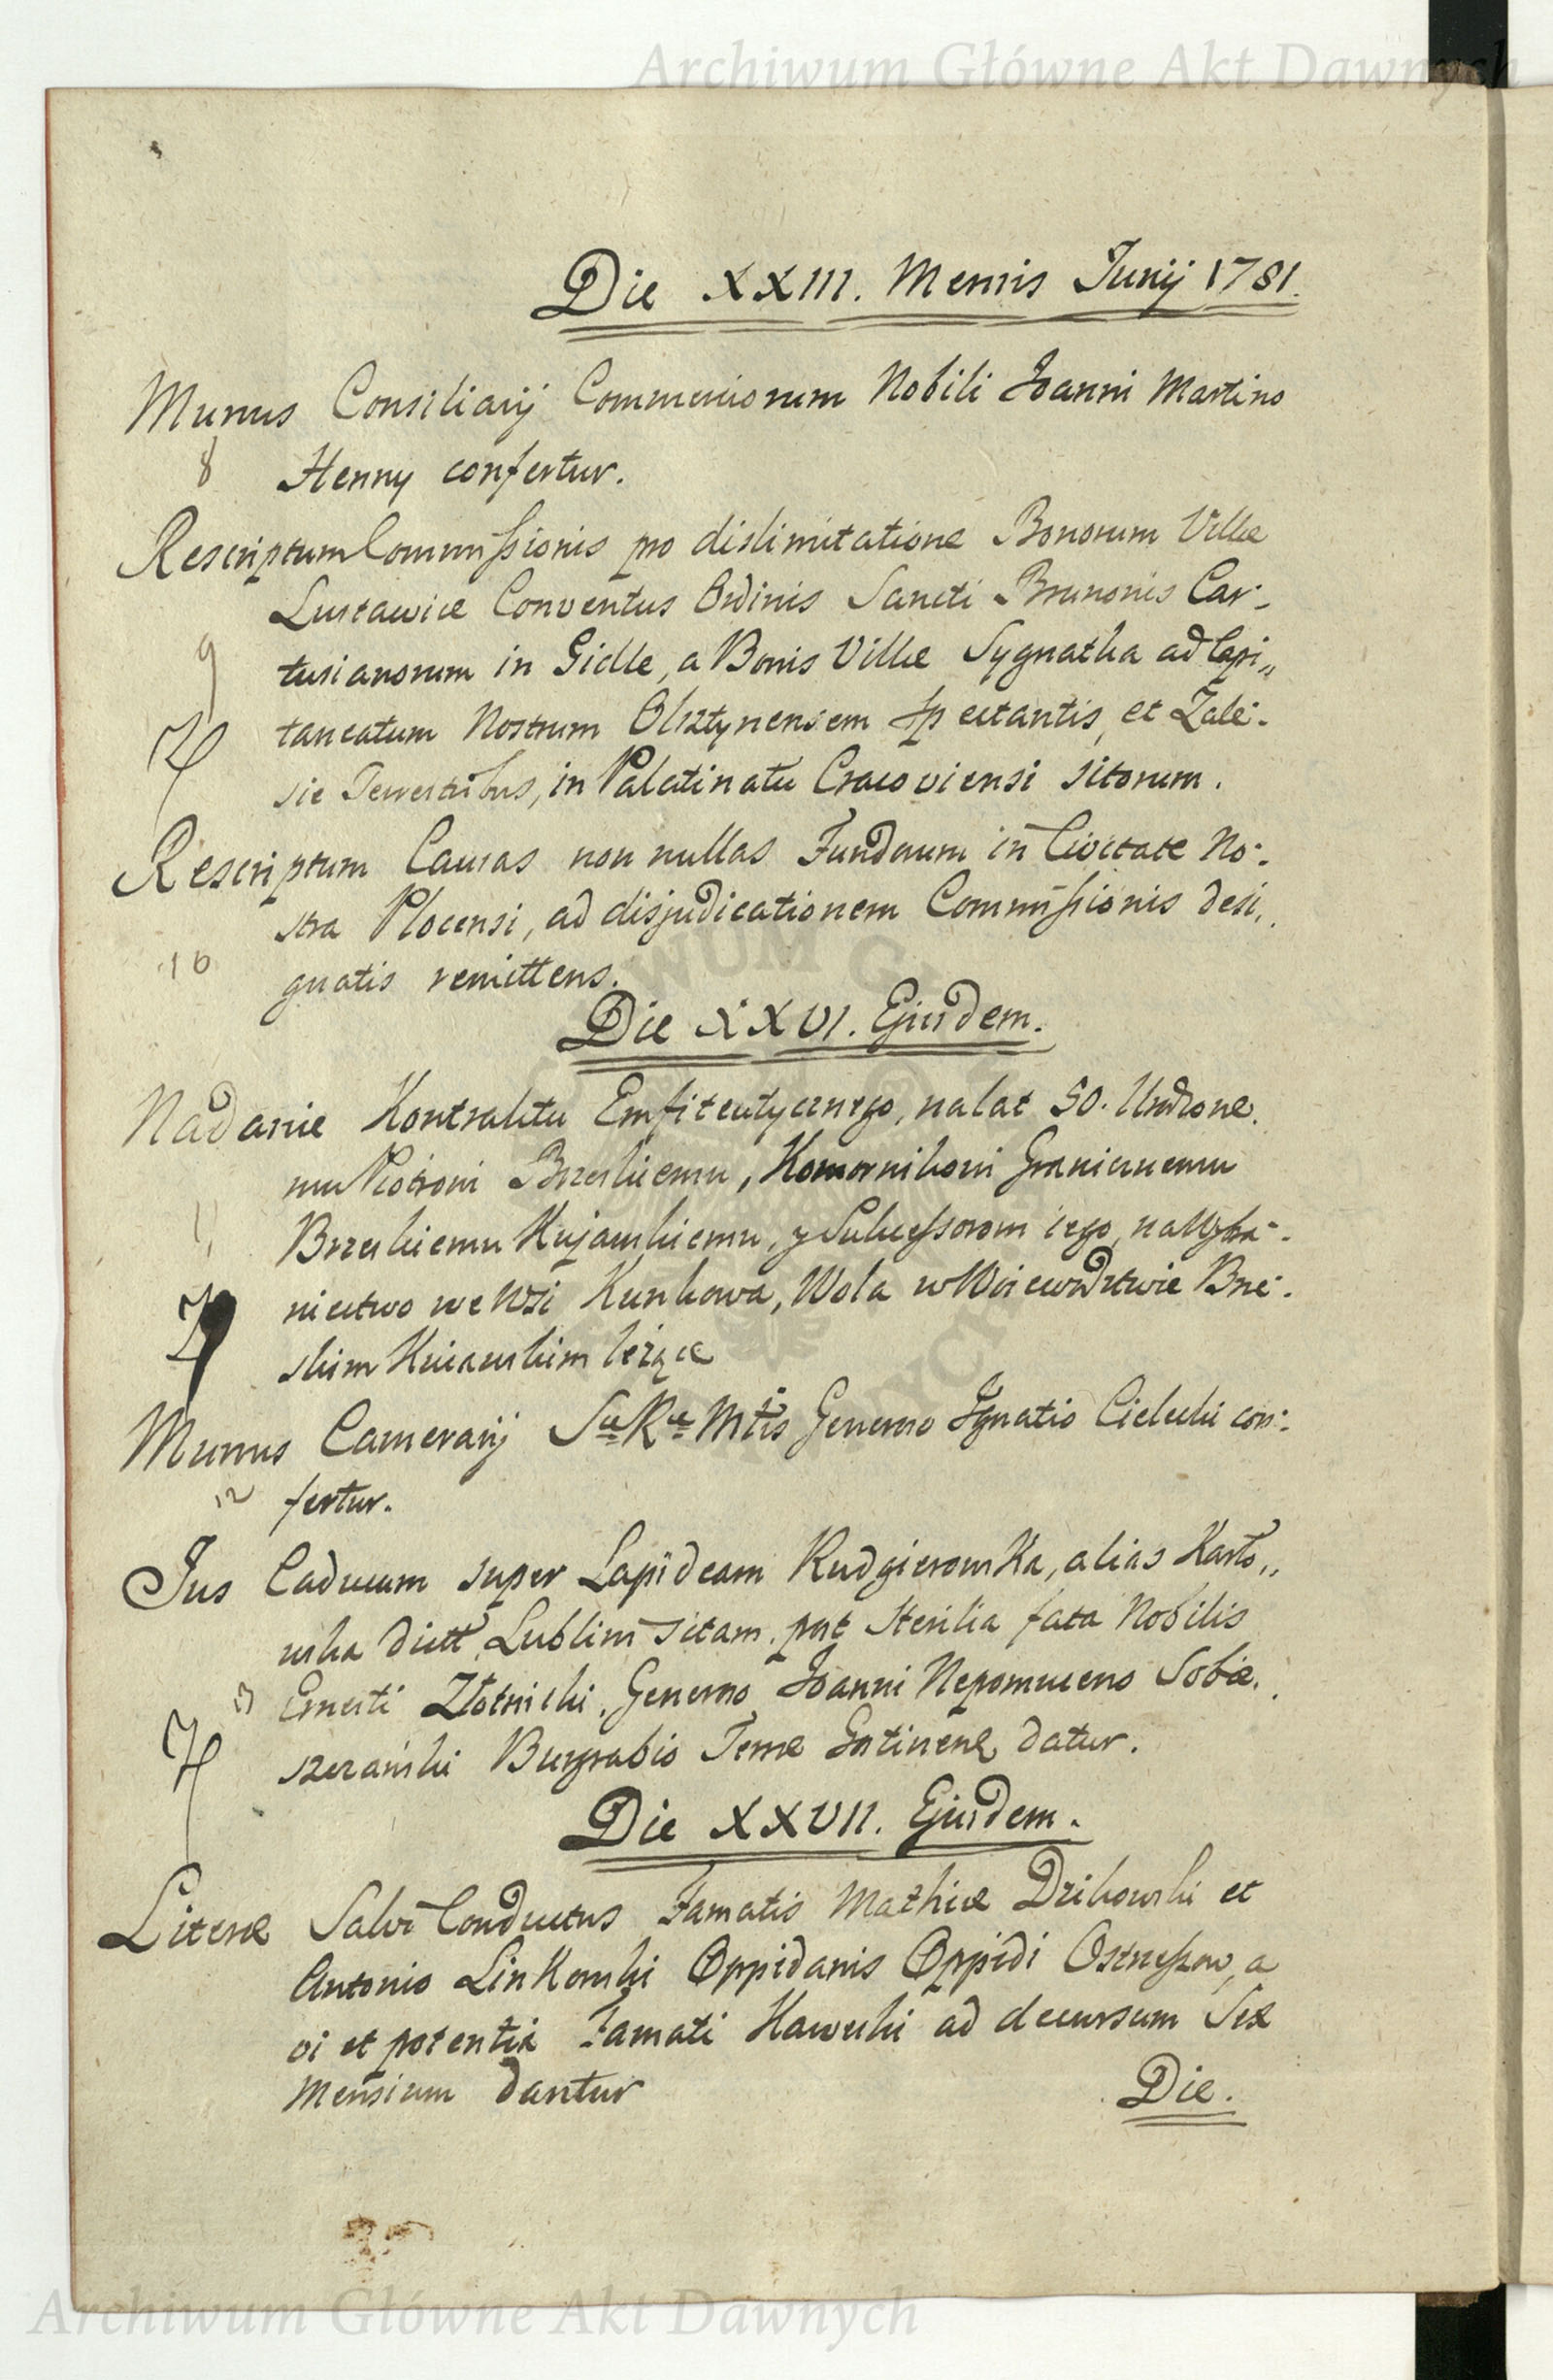 Archiwum Główne Akt Dawnych
Die XXIII. Mensis Junij 1781.
Munus Consiliarij Commerciorum Nobili Joanni Martino
8 Henny confertur.
Rescriptum Commissionis pro dislimitatione Bonorum Villæ
Lustawice Conventus Ordinis Sancti Brunonis Car-
9 tusianorum in Gidle, a Bonis Villæ Sygnatka ad Capi„
taneatum Nostrum Olsztynensem spectantis, et Zale-
sie Terrestribus, in Palatinatu Cracoviensi sitorum.
Rescriptum Causas non nullas Fundorum in Civitate No-
stra Plocensi, ad disjudicationem Commissionis desi„
10 gnatis remittens.
Die XXVI. Ejusdem.
Nadanie Kontraktu Emfiteutycznego, na lat 50. Urodzone.
mu Piotrowi Brzeskiemu, Komornikowi Granicznemu
11 Brzeskiemu Kujawskiemu, y Sukcessorom iego, na Wybra-
niectwo we Wsi Kunkowa, Wola w Woiewodztwie Brze-
skim Kuiawskim leżące
Munus Camerarij Sæ Ræ Mtis Generoso Ignatio Cielecki con-
12 fertur.
Jus Caducum super Lapideam Rudgierowska, alias Karło„
wska dictt, Lublini sitam, post sterilia fata Nobilis
13 Ernesti Złotnicki, Generoso Joanni Nepomuceno Sobie.
szczański Burgrabio Terræ Gostinenæ datur.
Die XXVII. Ejusdem.
Literæ Salvi Conductus Famatis Mathiæ Dzikowski et
Antonio Linkowski Oppidanis Oppidi Ostrzeszow, a
vi et potentia Famati Kawecki ad decursum Sex
Mensium dantur
Die.
Archiwum Główne Akt Dawnych